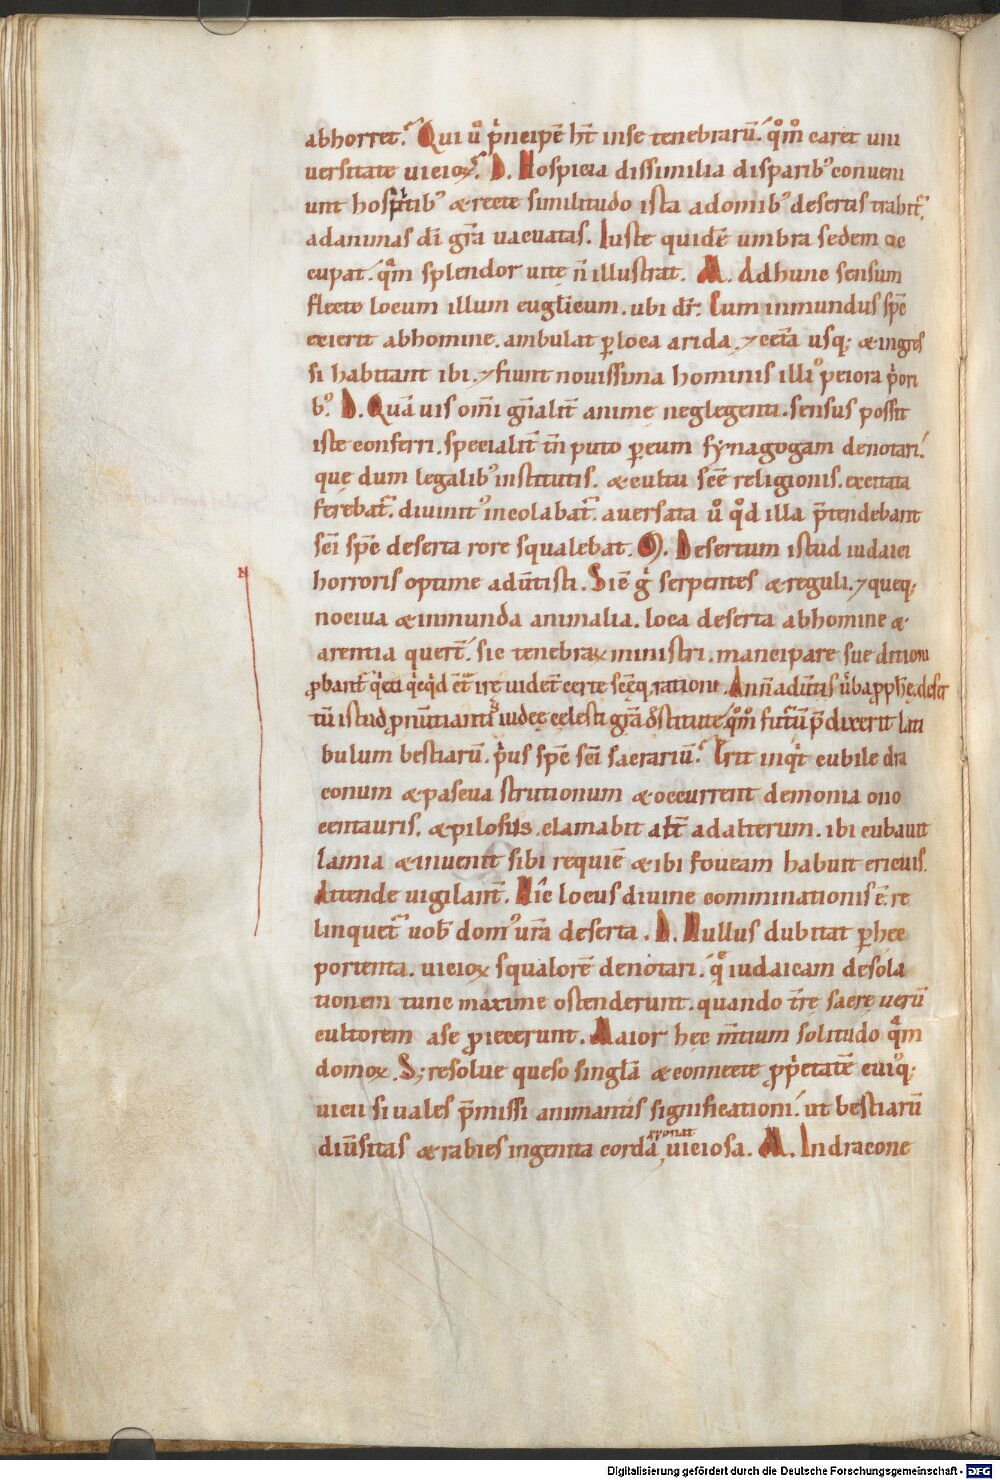 abhorret. Qui ũ p̃ncipẽ hт̃ inse tenebrarũ. qͦmͦ caret uni
uersitate uicioꝝ. D. Hospicia dissimilia disparibꝰ conueni
unt hospitibꝰ & recte similitudo ista adomibꝰ desertis trahit̃,
adanimas dĩ gr̃a uacuatas. Iuste quidẽ umbra sedem oc
cupat. qͣm splendor uite ñ illustrat. M. Adhunc sensum
flecte locum illum euglicum. ubi dr̃. Cum inmundus spc̃
exierit abhomine. ambulat ꝑ loca arida. ⁊ cet̃a usq; & ingres
si habitant ibi. ⁊ fiunt nouissima hominis illiꝰ peiora p̃ori
bꝰ. D. Quã uis om̃i gñalit̃ anime neglegenti. sensus possit
iste conferri. specialit̃ tñ puto ꝑ eum synagogam denotari.
que dum legalibꝰ institutis. & cultu scẽ religionis. excitata
ferebat̃. diuinitꝰ incolabat̃. auersata ũ qͦd illa p̃tendebant
scĩ spc̃ deserta rore squalebat. M. Desertum istud iudaici
horroris optime adũtisti. Sic̃ gͥ serpentes & reguli. ⁊ queq;
nociua & inmunda animalia. loca deserta abhomine &
arentia quer̃t. sic tenebraꝝ ministri. mancipare sue ditioni
ꝓbant̃
tũ istud pronũtiantis iudeę celesti gr̃a dstitute. qͦmͦ futũ p̃dixerit lati
bulum bestiarũ. p̃us spc̃ scĩ sacrariũ. Erit inqͥt cubile dra
conum & pascua strutionum & occurrent demonia ono
centauris. & pilosus clamabit alt̃ adalterum. ibi cubauit
lamia & inuenit sibi requiẽ & ibi foueam habuit ericius.
Attende uigilant̃. Hic̃ locus diuine comminationis ẽ. re
linquet̃ uob̃ domꝰ ur̃a deserta. D. Nullus dubitat ꝑ hec
portenta. uicioꝝ squalorẽ denotari. qͥ iudaicam desola
tionem tunc maxime ostenderunt. quando tr̃ę sacrę uerũ
cultorem ase ꝓiecerunt. Maior hec m̃tium solitudo qͣm
domoꝝ. S; resolue queso singlã & connecte ꝓp̃etatẽ cuiꝰq;
uicii si uales p̃missi animantis significationi. ut bestiarũ
diũsitas & rabies ingenita corda uiciosa. M. In dracone
N